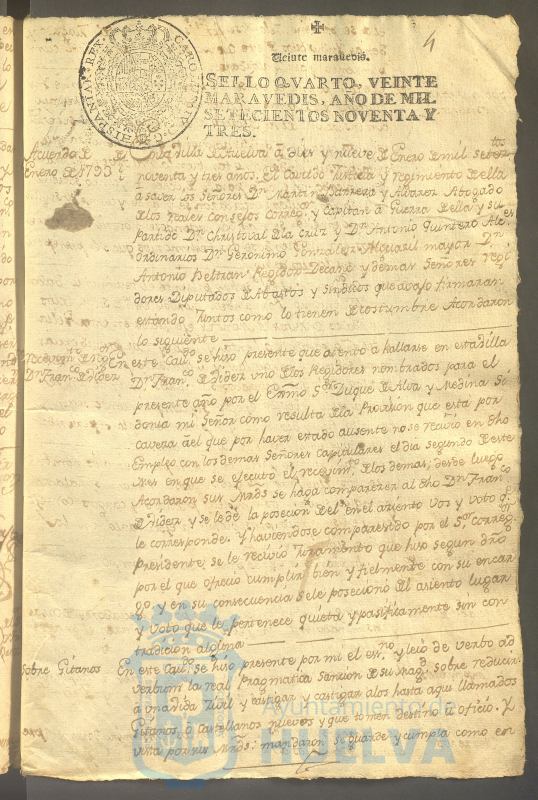 4
Veinte maravedis.
SELLO QVARTO, VEINTE
MARAVEDIS, AÑO DE MIL
SETECIENTOS NOVENTA Y
TRES.
HISPANIARUM REX CAROLUS
Acuerdo
Enero 1793
En la villa de Huelva a dies y nueve de Enero de mil setez.tos
noventa y tres años, el Cavildo Justicia y regimiento della
a saver los Señores Dn. Martin Barrera y Alvarez Abogado
de los reales Consejos Correg.or y Capitan a Guerra della y su
partido Dn. Christoval de la Cruz y Dn. Antonio Quintero Alc.es
ordinarios Dn. Geronimo Gonzalez Alguasil mayor Dn.
Antonio Beltran Regidor Decano, y demas Señores regi
dores Diputados de Abastos y Sindicos que avajo firmaran
estando juntos como lo tienen de costumbre Acordaron
lo siguiente
En este Cav.do se hiso presente que atento a hallarse en esta villa
Dn. Fran.co uno de los Regidores nombrados para el
presente año por el Exmo Sr. Duque de Alva y Medina Si
donia mi Señor como resulta de la Provision que esta por
cavera del que por haver estado ausente no se recivio en dho
Empleo con los demas Señores Capitulares el dia segundo de este
mes en que se efectuó el recevim.to de los demas; desde luego
Acordaron sus Mrds se haga comparezer al dho Dn. Fran.co
y se le dé la posecion del en el asiento vos y voto q.e
le corresponde. Y haviendose comparesido por el Sr. Correg.or
Presidente, se le recivio Juramento que hiso segun dro
por el que ofrecio cumplir bien y fielmente con su encar
go, y en su consecuencia se le posecionó del asiento lugar
y voto que le pertenece quieta y pasificamente sin con
tradicion alguna
Sobre Gitanos
En este Cav.do se hiso presente por mi el es.no y leió de verbo ad
verbum la real pragmatica Sancion de su Mag.d sobre reducir
a vida Zivil y castigar a los hasta aqui llamados
Gitanos, ó Castellanos nuevos y que tomen destino u oficio. Y
vista por sus Mrds. mandaron se guarde y cumpla como en
Ayuntamiento de
HUELVA